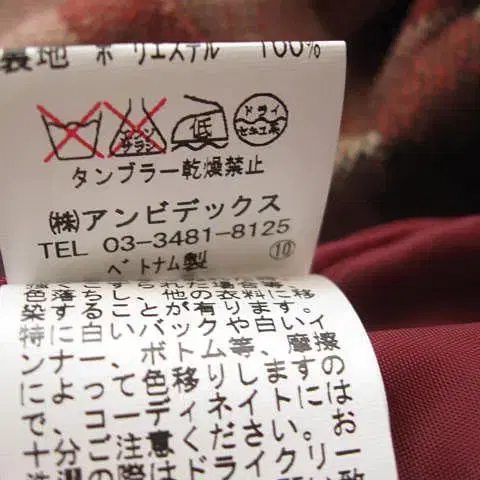 裏地 ポリエステル 100%
エンソ
サラシ
低
ドライ
セキユ系
タンブラー乾燥禁止
(株)アンビデックス
TEL 03-3481-8125
ベトナム製 ⑩
染することが有ります。
特に白いバックや白いイ
ンナー、ボトム等、摩擦
によって色移りしますの
で、コーディネイトにはお
十分ご注意ください。
の際はドライクリ